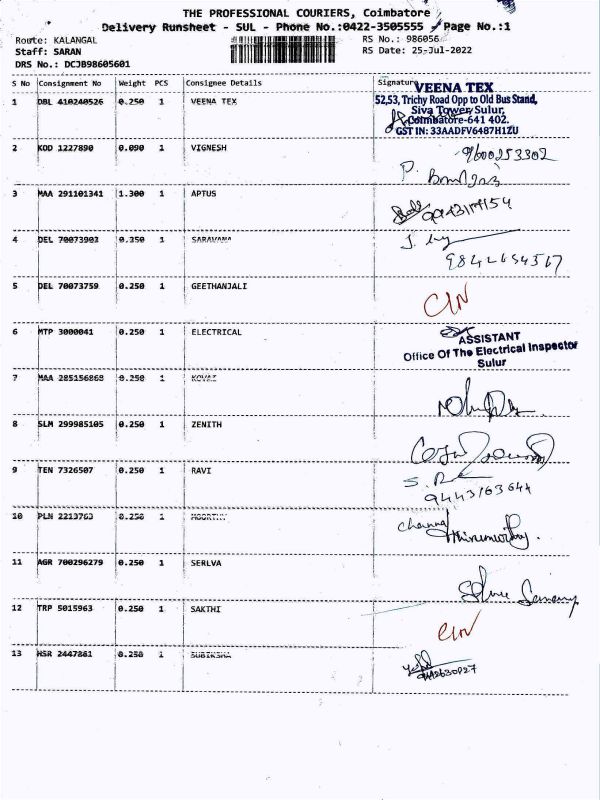 THE PROFESSIONAL COURIERS, Coimbatore
Delivery Runsheet - SUL - Phone No.:0422-3505555 Page No.:1
Route: KALANGAL RS No.: 986056
Staff: SARAN RS Date: 25-Jul-2022
DRS No.: DCJB98605601
S No Consignment No Weight PCS Consignee Details Signature
VEENA TEX
52,53, Trichy Road Opp to Old Bus Stand,
Siva Tower, Sulur,
Coimbatore-641 402.
GST IN: 33AADFV6487H1ZU
1 DBL 410240526 0.250 1 VEENA TEX
2 KOD 1227890 0.090 1 VIGNESH 9600253302
3 MAA 291101341 1.300 1 APTUS
4 DEL 70073903 0.350 1 SARAVANA J.
9842654567
5 DEL 70073759 0.250 1 GEETHANJALI CIN
6 MTP 3000041 0.250 1 ELECTRICAL
ASSISTANT
Office Of The Electrical Inspector
Sulur
7 MAA 285156863 0.250 1
8 SLM 299985105 0.250 1 ZENITH
9 TEN 7326507 0.250 1 RAVI S.
9443163644
10 PLN 2213763 0.250 1 MOORTHY
11 AGR 700296279 0.250 1 SERLVA
12 TRP 5015963 0.250 1 SAKTHI CIN
13 HSR 2447861 0.250 1 SUBIKSHA